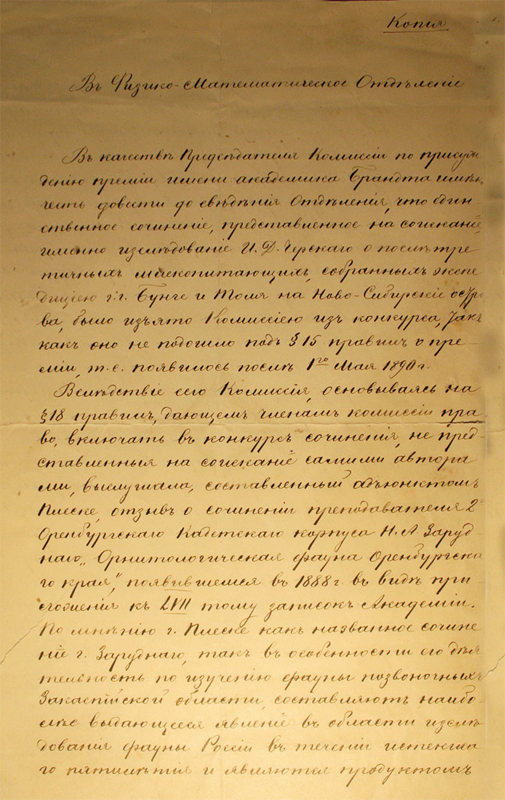 Копія
Въ Физико-Математическое Отдѣленіе
Въ качествѣ Предсѣдателя Комиссіи по присуж
денію преміи имени академика Брандта имѣю
честь довести до свѣдѣнія Отдѣленія, что един
ственное сочиненіе, представленное на соисканіе,
именно изслѣдованіе И. Д. Черскаго о послѣтре
тичныхъ млекопитающихъ, собранныхъ экспе
диціею г.г. Бунге и Толя на Ново-Сибирскіе остро
ва, было изъято Комиссіею изъ конкурса, такъ
какъ оно не подошло подъ § 15 правилъ о пре
міи, т. е. появилось послѣ 1го Мая 1890 г.
Вслѣдствіе сего Комиссія, основываясь на
§ 18 правилъ, дающемъ членамъ комиссіи пра
во, включать въ конкурсъ сочиненія, не пред-
ставленныя на соисканіе самими автора
ми, выслушала, составленный адъюнктомъ
Плеске, отзывъ о сочиненіи преподавателя 2
Оренбургскаго Кадетскаго корпуса Н. А Заруд-
наго „Орнитологическая фауна Оренбургска
го края", появившемся въ 1888 г. въ видѣ при-
ложенія къ LVII тому записокъ Академіи.
По мнѣнію г. Плеске какъ названное сочине
ніе г. Заруднаго, такъ въ особенности его дѣя
тельность по изученію фауны позвоночныхъ
Закаспійской области, составляютъ наибо-
лѣе выдающееся явленіе въ области изслѣ
дованія фауны Россіи въ теченіи истекша
го пятилѣтія и являются продуктомъ